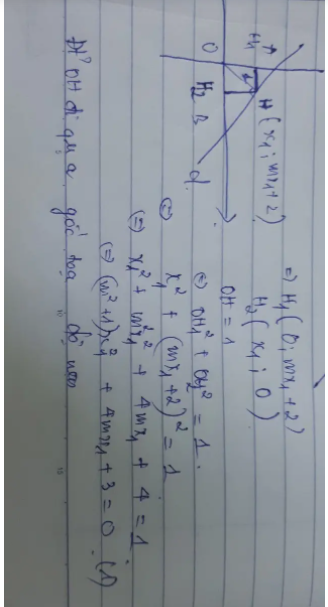 H₁
O
1
H (x₁; mx₁+2)
H₂ B
d
=) H₁ (0; mx₁+2)
H₂ (x₁; 0)
OH = 1
(=) OH₁² + OH₂² = 1
(=) x₁² + (mx₁+2)² = 1
(=) x₁² + m²x₁² + 4mx₁ + 4 = 1
(=) (m²+1)x₁² + 4mx₁ + 3 = 0 (1)
OH đi qua gốc toạ độ nên